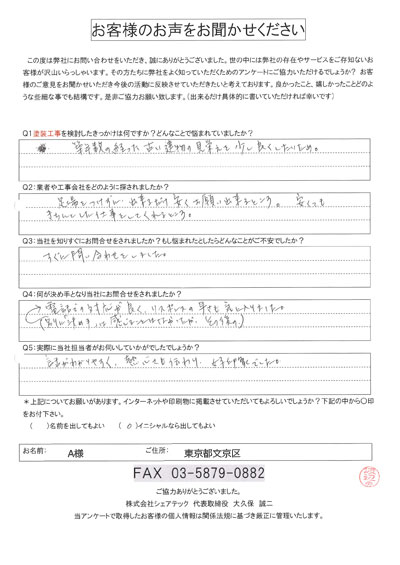 お客様のお声をお聞かせください
この度は弊社にお問い合わせをいただき、誠にありがとうございました。世の中には弊社の存在やサービスをご存知ないお
客様が沢山いらっしゃいます。その方たちに弊社をよく知っていただくためのアンケートにご協力いただけるでしょうか？ お客
様のご意見をお聞かせいただき今後の活動に反映させていただきたいと考えております。良かったこと、嬉しかったことどのよ
うな些細な事でも結構です。是非ご協力お願い致します。（出来るだけ具体的に書いていただければ幸いです）
Q1塗装工事を検討したきっかけは何ですか？どんなことで悩まれていましたか？
年数の経った古い建物の見栄えを少し良くしたいため。
Q2：業者や工事会社をどのように探されましたか？
安くお願い出来るところ。安くても
きちんとした仕事をしてくれるところ。
Q3：当社を知りすぐにお問合せをされましたか？もし悩まれたとしたらどんなことがご不安でしたか？
すぐに問い合わせをしました。
Q4：何が決め手となり当社にお問合せをされましたか？
電話での対応が良く、リスポンスの早さも気に入りました。
Q5：実際に当社担当者がお伺いしていかがでしたでしょうか？
話がわかりやすく、熱心さも伝わり、好印象でした。
＊上記についてお願いがあります。インターネットや印刷物に掲載させていただいてもよろしいでしょうか？下記の中から〇印
をお付下さい。
（　　）名前を出してもよい　（ o ）イニシャルなら出してもよい
お名前： A様 ご住所： 東京都文京区
FAX 03-5879-0882
ご協力ありがとうございました。
株式会社シェアテック 代表取締役 大久保 誠二
当アンケートで取得したお客様の個人情報は関係法規に基づき厳正に管理いたします。